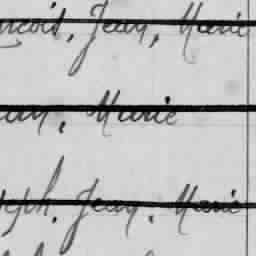 ncois, Jean, Marie
ean, Marie
seph, Jean, Marie